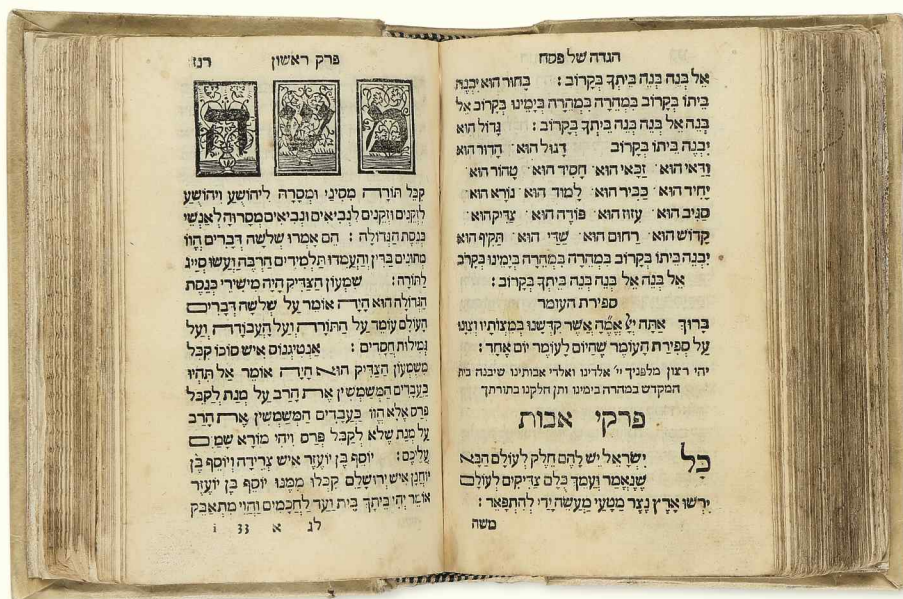 הגדה של פסח
אל בְּנֵה בְּנֵה בֵּיתְךָ בְּקָרוֹב : בָּחוּר הוּא יִבְנֶה
בֵיתוֹ בְּקָרוֹב בִּמְהֵרָה בִּמְהֵרָה בְּיָמֵינוּ בְּקָרוֹב אֵל
בְּנֵה אֵל בְּנֵה בְּנֵה בֵּיתְךָ בְּקָרוֹב : גָּדוֹל הוּא
יִבְנֶה בֵיתוֹ בְּקָרוֹב דָּגוּל הוּא הָדוּר הוּא
וַדַּאי הוּא זַכַּאי הוּא חָסִיד הוּא טָהוֹר הוּא
יָחִיד הוּא כַּבִּיר הוּא לָמוּד הוּא נוֹרָא הוּא
סַגִּיב הוּא עִזּוּז הוּא פּוֹדֶה הוּא צַדִּיק הוּא
קָדוֹשׁ הוּא רַחוּם הוּא שַׁדַּי הוּא תַּקִּיף הוּא
יִבְנֶה בֵיתוֹ בְּקָרוֹב בִּמְהֵרָה בִּמְהֵרָה בְּיָמֵינוּ בְּקָרֹב
אֵל בְּנֵה אֵל בְּנֵה בְּנֵה בֵּיתְךָ בְּקָרוֹב :
ספירת העומר
בָּרוּךְ אַתָּה אֲשֶׁר קִדְּשָׁנוּ בְּמִצְוֹתָיו וְצִוָּנוּ
עַל סְפִירַת הָעוֹמֶר שֶׁהַיּוֹם לָעוֹמֶר יוֹם אֶחָד :
יהי רצון מלפניך יי' אלדינו ואלדי אבותינו שיבנה בית
המקדש במהרה בימינו ותן חלקנו בתורתך
פרקי אבות
כָּל יִשְׂרָאֵל יֵשׁ לָהֶם חֵלֶק לָעוֹלָם הַבָּא
שֶׁנֶּאֱמַר וְעַמֵּךְ כֻּלָּם צַדִּיקִים לְעוֹלָם
יִרְשׁוּ אָרֶץ נֵצֶר מַטָּעַי מַעֲשֵׂה יָדַי לְהִתְפָּאֵר :
משה
פרק ראשון רנז
משה
קִבֵּל תּוֹרָה מִסִּינַי וּמְסָרָהּ לִיהוֹשֻׁעַ וִיהוֹשֻׁעַ
לִזְקֵנִים וּזְקֵנִים לִנְבִיאִים וּנְבִיאִים מְסָרוּהָ לְאַנְשֵׁי
כְּנֶסֶת הַגְּדוֹלָה : הֵם אָמְרוּ שְׁלֹשָׁה דְבָרִים הֱווּ
מְתוּנִים בַּדִּין וְהַעֲמִדוּ תַלְמִידִים הַרְבֵּה וַעֲשׂוּ סְיָיג
לַתּוֹרָה : שִׁמְעוֹן הַצַּדִּיק הָיָה מִשְּׁיֵרֵי כְּנֶסֶת
הַגְּדוֹלָה הוּא הָיָה אוֹמֵר עַל שְׁלֹשָׁה דְבָרִים
הָעוֹלָם עוֹמֵד עַל הַתּוֹרָה וְעַל הָעֲבוֹדָה וְעַל
גְּמִילוּת חֲסָדִים : אַנְטִיגְנוֹס אִישׁ סוֹכוֹ קִבֵּל
מִשִּׁמְעוֹן הַצַּדִּיק הוּא הָיָה אוֹמֵר אַל תִּהְיוּ
כַּעֲבָדִים הַמְשַׁמְּשִׁין אֶת הָרַב עַל מְנָת לְקַבֵּל
פְּרָס אֶלָּא הֱווּ כַּעֲבָדִים הַמְשַׁמְּשִׁין אֶת הָרַב
עַל מְנָת שֶׁלֹּא לְקַבֵּל פְּרָס וִיהִי מוֹרָא שָׁמַיִם
עֲלֵיכֶם : יוֹסֵף בֶּן יוֹעֶזֶר אִישׁ צְרֵידָה וְיוֹסֵף בֶּן
יוֹחָנָן אִישׁ יְרוּשָׁלַם קִבְּלוּ מִמֶּנּוּ יוֹסֵף בֶּן יוֹעֶזֶר
אוֹמֵר יְהִי בֵיתְךָ בֵּית וַעַד לַחֲכָמִים וֶהֱוֵי מִתְאַבֵּק
לג א 33 i